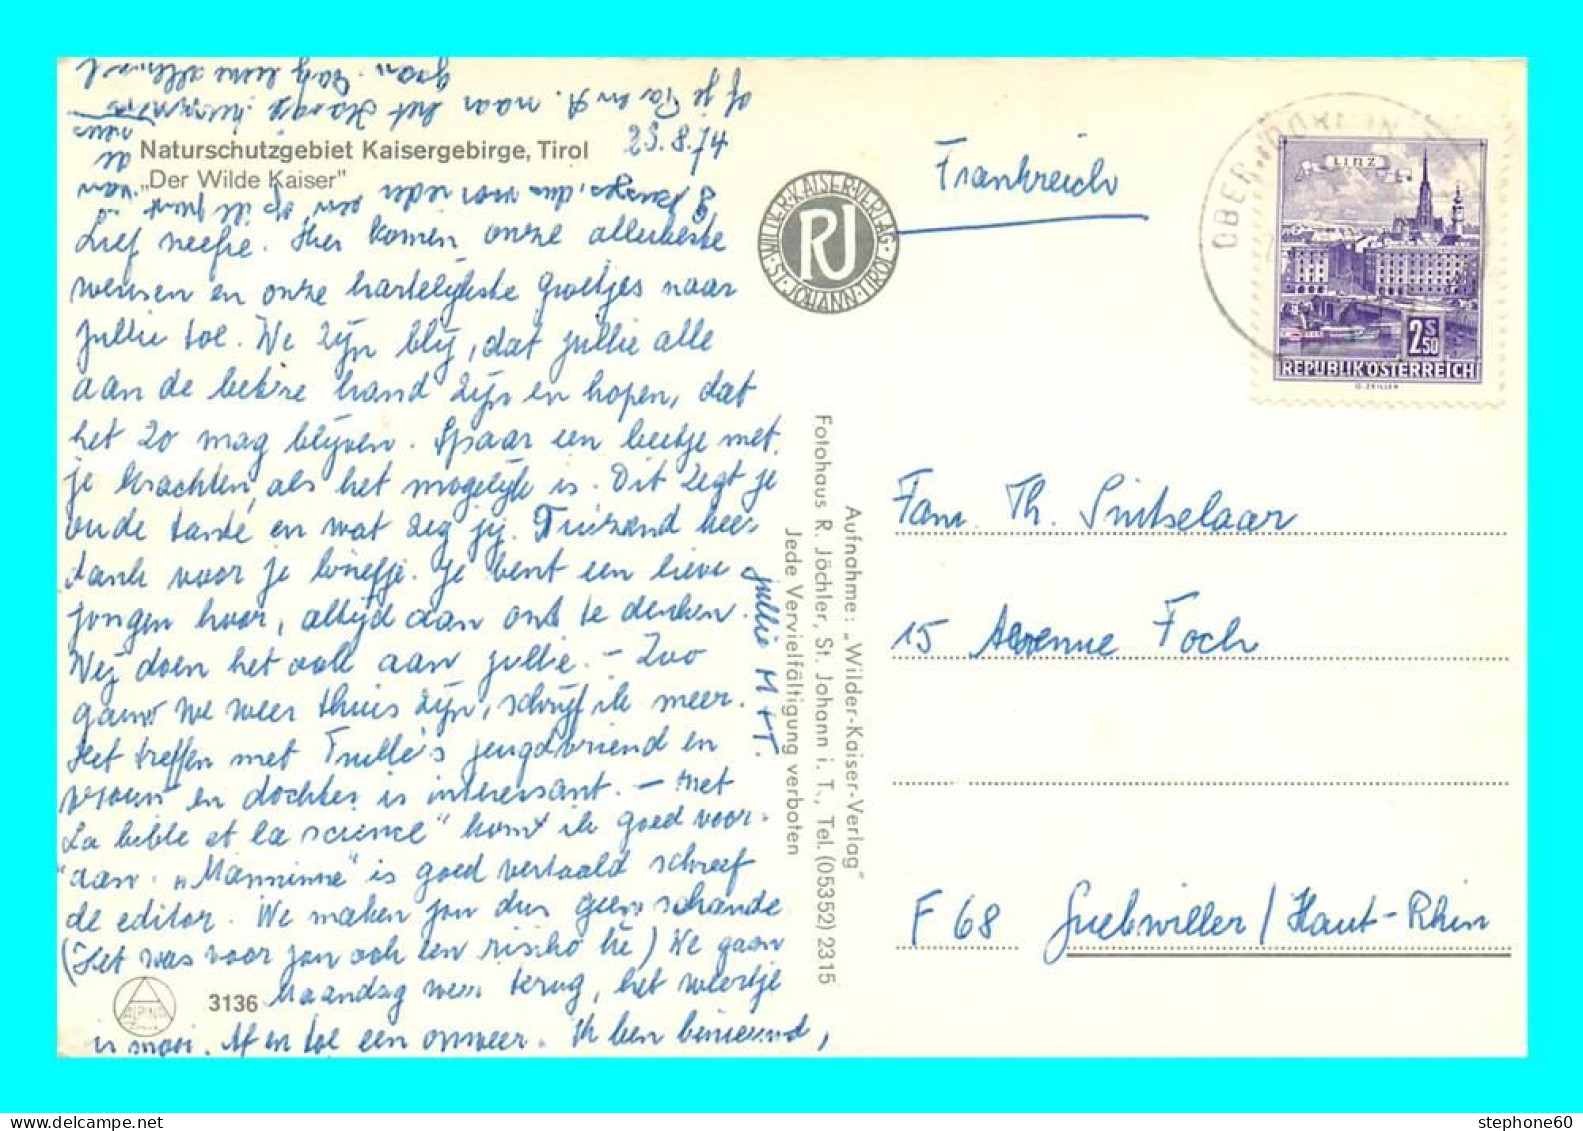 of je Pa en A. naar het Haagje
gaan. Dag lieve allemaal
23.8.74
Naturschutzgebiet Kaisergebirge, Tirol
„Der Wilde Kaiser"
Lief neefje. Hier komen onze allerbeste
wensen en onze hartelijkste groetjes naar
jullie toe. We zijn blij, dat jullie alle
aan de betere hand zijn en hopen, dat
het zo mag blijven. Spaar een beetje met
je krachten, als het mogelijk is. Dit zegt je
oude tante en wat zeg jij. Duizend keer
dank voor je briefje. Je bent een lieve
jongen hoor, altijd aan ons te denken.
Wij doen het ook aan jullie. – Zoo
gauw we weer thuis zijn, schrijf ik meer.
Het treffen met Trulle's jeugdvriend en
vrouw en dochter is interessant. – Met
La bible et la science" komt ik goed voor-
aan. „Manninne" is goed vertaald schreef
de editor. We maken jou dus geen schande
(Het was voor jou ook een risiko hè) We gaan
Maandag weer terug, het weertje
is mooi. Af en toe een onweer. Ik ben benieuwd,
jullie M + T.
3136
ALPINA
WILDER-KAISER-VERLAG · ST. JOHANN-TIROL ·
RJ
Fotohaus R. Jöchler, St. Johann i. T., Tel. (05352) 2315
Aufnahme: „Wilder-Kaiser-Verlag"
Jede Vervielfältigung verboten
Frankreich
LINZ
2 S 50
REPUBLIK ÖSTERREICH
O. ZEILLER
Fam. Th. Sintselaar
15 Avenue Foch
F 68 Guebwiller / Haut-Rhin
stephone60